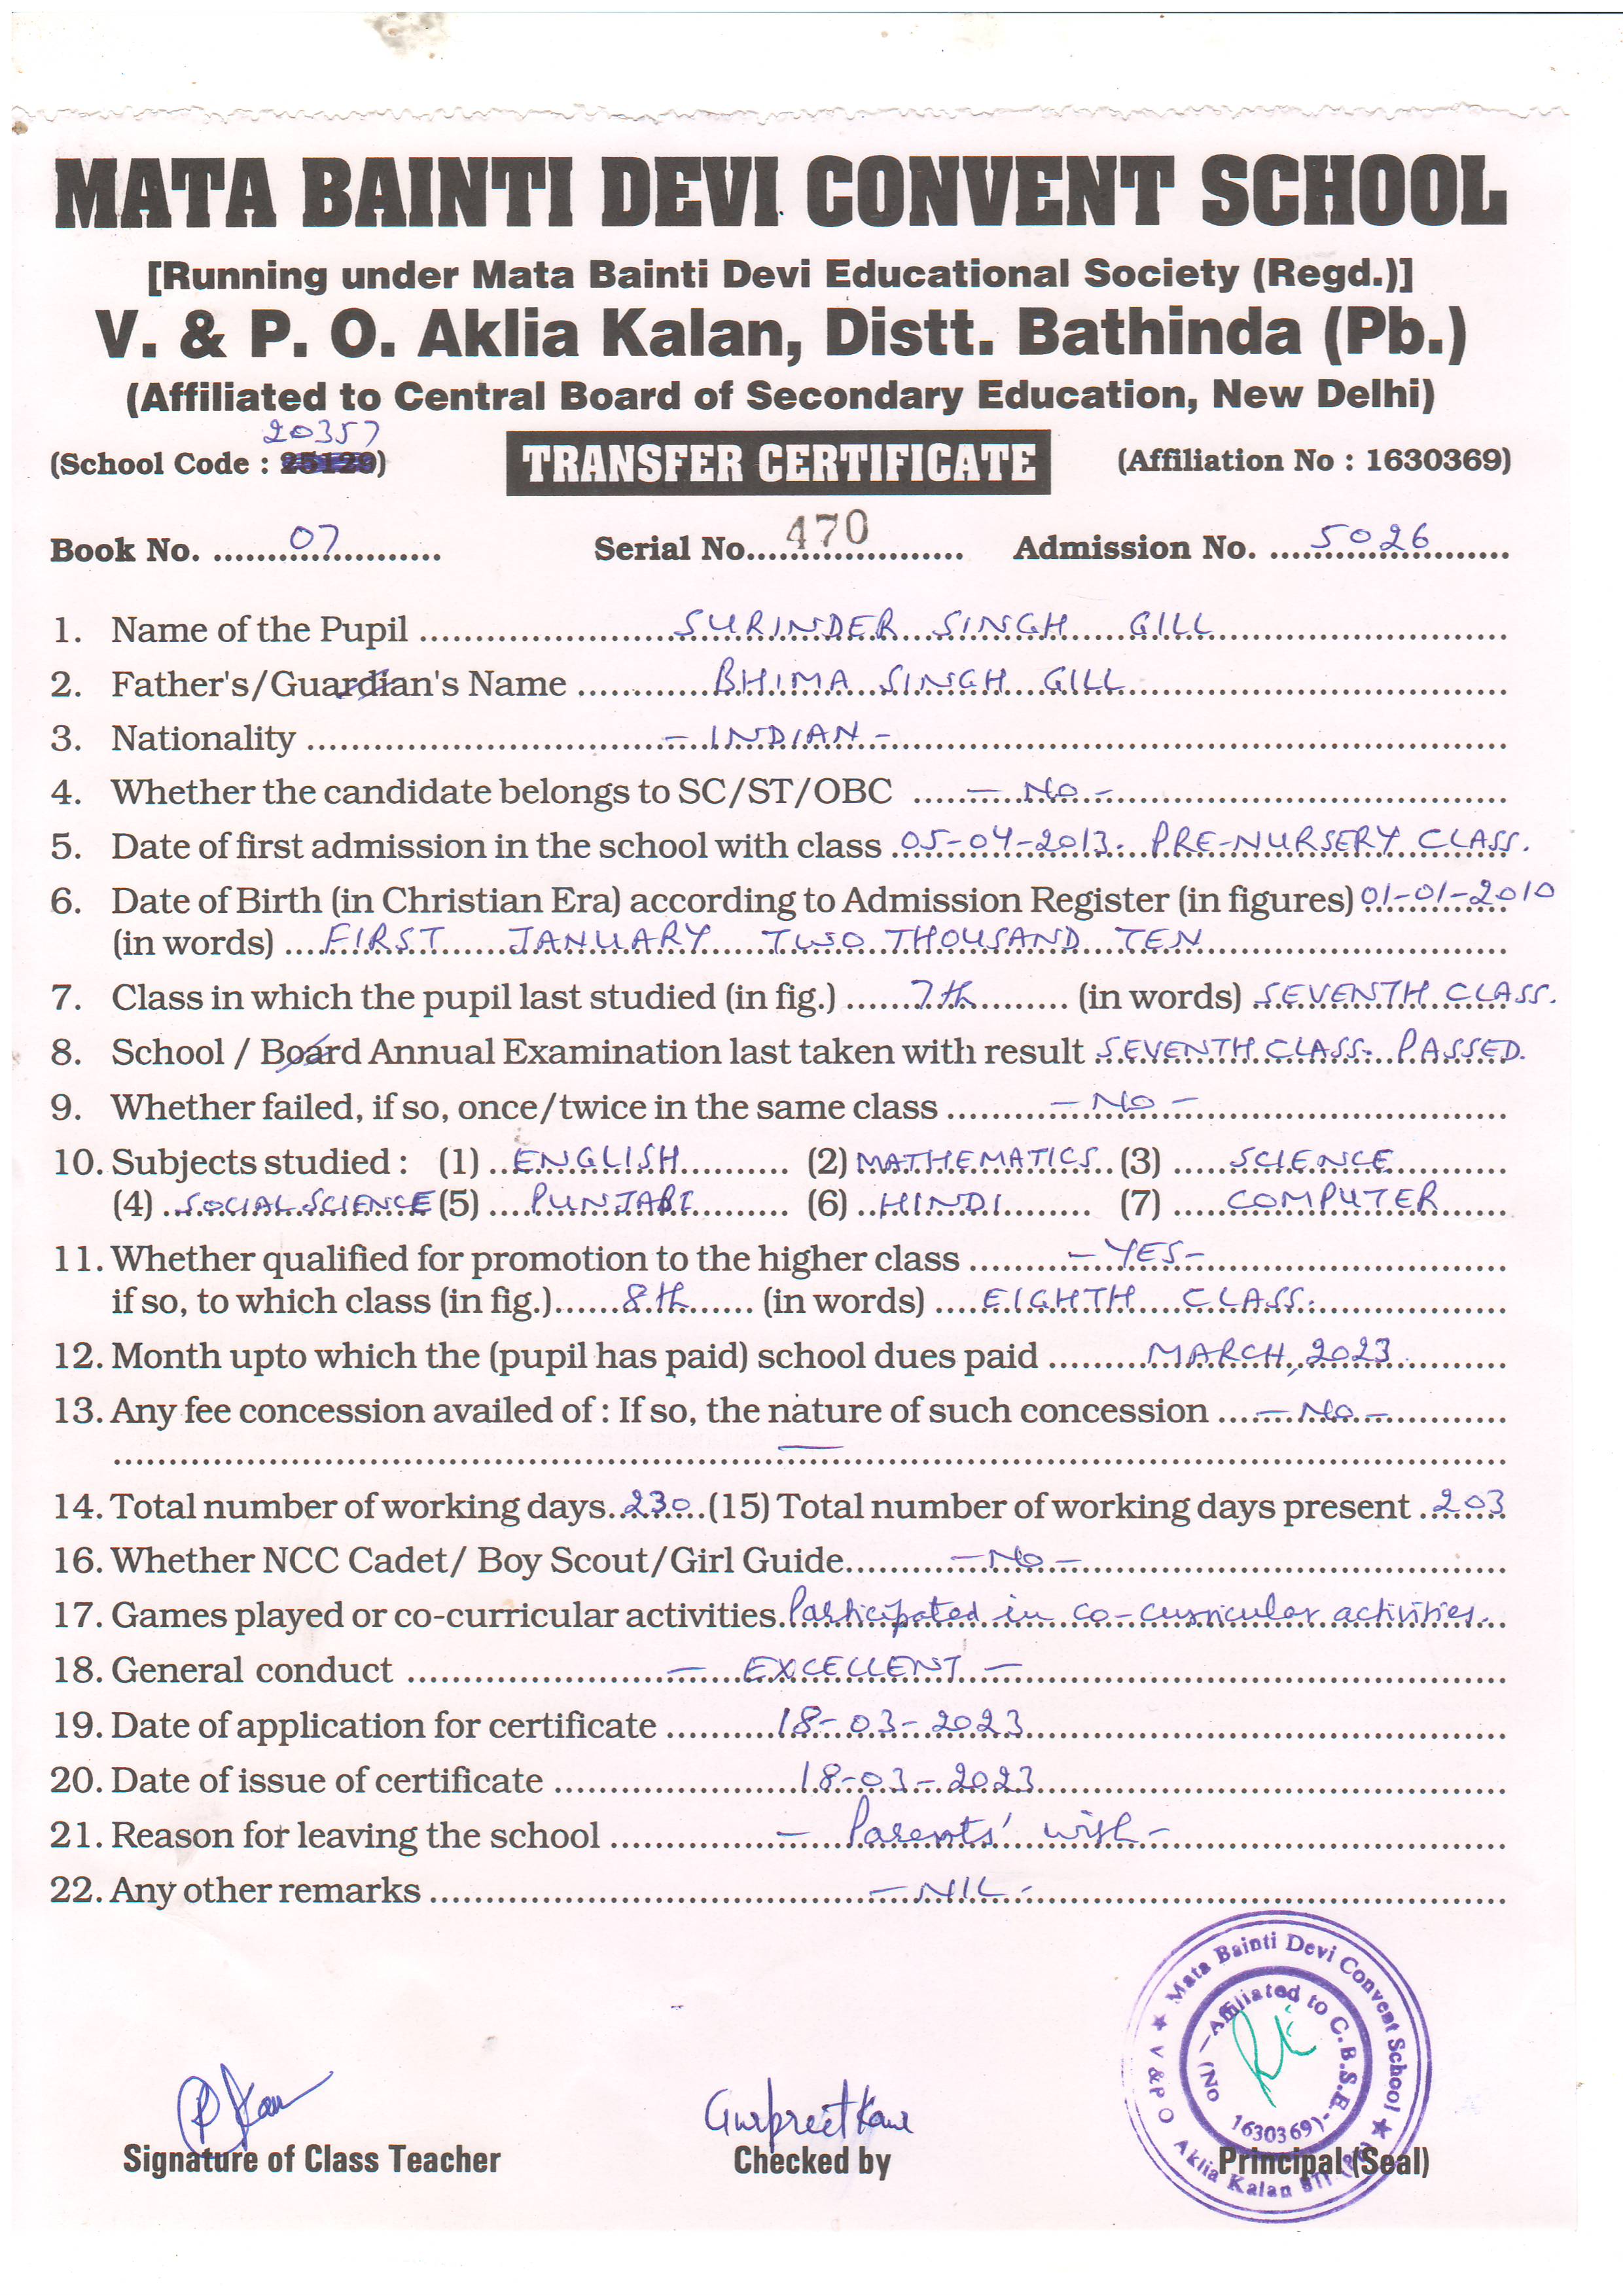 MATA BAINTI DEVI CONVENT SCHOOL
[Running under Mata Bainti Devi Educational Society (Regd.)]
V. & P. O. Aklia Kalan, Distt. Bathinda (Pb.)
(Affiliated to Central Board of Secondary Education, New Delhi)
20357
(School Code : 25129) TRANSFER CERTIFICATE (Affiliation No : 1630369)
Book No. 07 Serial No. 470 Admission No. 5026
1. Name of the Pupil SURINDER SINGH GILL
2. Father's/Guardian's Name BHIMA SINGH GILL
3. Nationality - INDIAN -
4. Whether the candidate belongs to SC/ST/OBC - No -
5. Date of first admission in the school with class 05-04-2013. PRE-NURSERY CLASS.
6. Date of Birth (in Christian Era) according to Admission Register (in figures) 01-01-2010
(in words) FIRST JANUARY TWO THOUSAND TEN
7. Class in which the pupil last studied (in fig.) 7th (in words) SEVENTH CLASS.
8. School / Board Annual Examination last taken with result SEVENTH CLASS. PASSED.
9. Whether failed, if so, once/twice in the same class - No -
10. Subjects studied : (1) ENGLISH (2) MATHEMATICS (3) SCIENCE
(4) SOCIAL SCIENCE (5) PUNJABI (6) HINDI (7) COMPUTER
11. Whether qualified for promotion to the higher class - YES -
if so, to which class (in fig.) 8th (in words) EIGHTH CLASS.
12. Month upto which the (pupil has paid) school dues paid MARCH, 2023
13. Any fee concession availed of : If so, the nature of such concession - No -
14. Total number of working days 230 (15) Total number of working days present 203
16. Whether NCC Cadet/ Boy Scout/Girl Guide - No -
17. Games played or co-curricular activities Participated in co-curricular activities.
18. General conduct - EXCELLENT -
19. Date of application for certificate 18-03-2023
20. Date of issue of certificate 18-03-2023
21. Reason for leaving the school - Parents' wish -
22. Any other remarks - NIL -
Mata Bainti Devi Convent School
V & P O Aklia Kalan BTI (Pb.)
Affiliated to C.B.S.E.
(No 1630369)
Gurpreet Kaur
Signature of Class Teacher Checked by Principal (Seal)